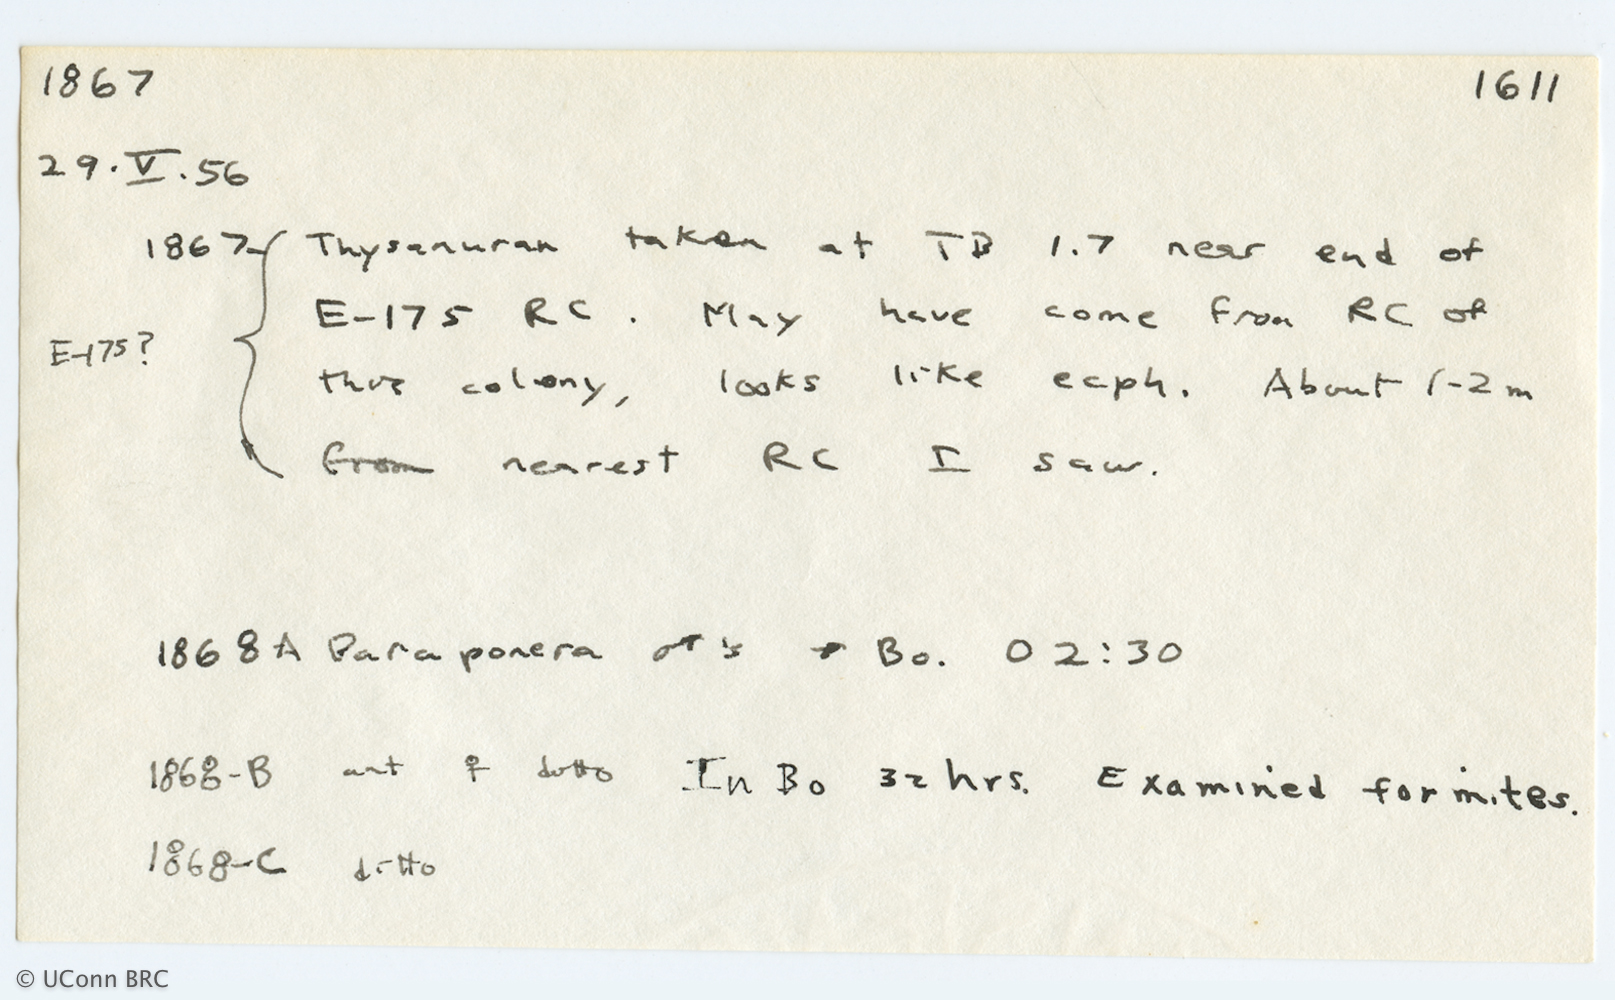 1867 1611
29.V.56
1867 Thysanuran taken at TB 1.7 near end of
E-175 RC. May have come from RC of
E-175?
this colony, looks like ecph. About 1-2 m
from nearest RC I saw.
1868A Paraponera → Bo. 02:30
1868-B ant ♀ ditto In Bo 32 hrs. Examined for mites.
1868-C ditto
© UConn BRC